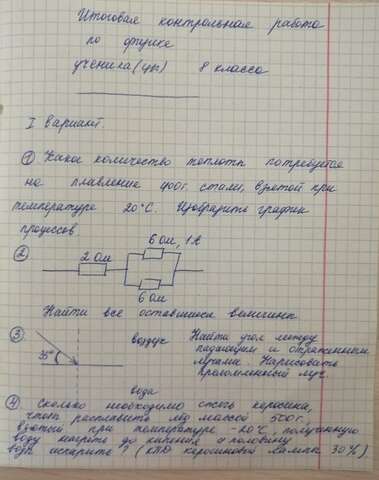 Итоговая контрольная работа
по физике
ученика(цы) 8 класса
I вариант.
① Какое количество теплоты потребуется
на плавление 400г. стали, взятой при
температуре 20°С. Изобразить график
процессов
② 2 Ом 6 Ом, 1А
6 Ом
Найти все оставшиеся величины
③ 35° воздух Найти угол между
падающим и отраженным
лучами. Нарисовать
преломленный луч.
вода
④ Сколько необходимо сжечь керосина,
чтоб расплавить лёд массой 500г.,
взятый при температуре -20°С, полученную
воду нагреть до кипения и половину
воды испарить? (КПД керосиновой лампы 30%)